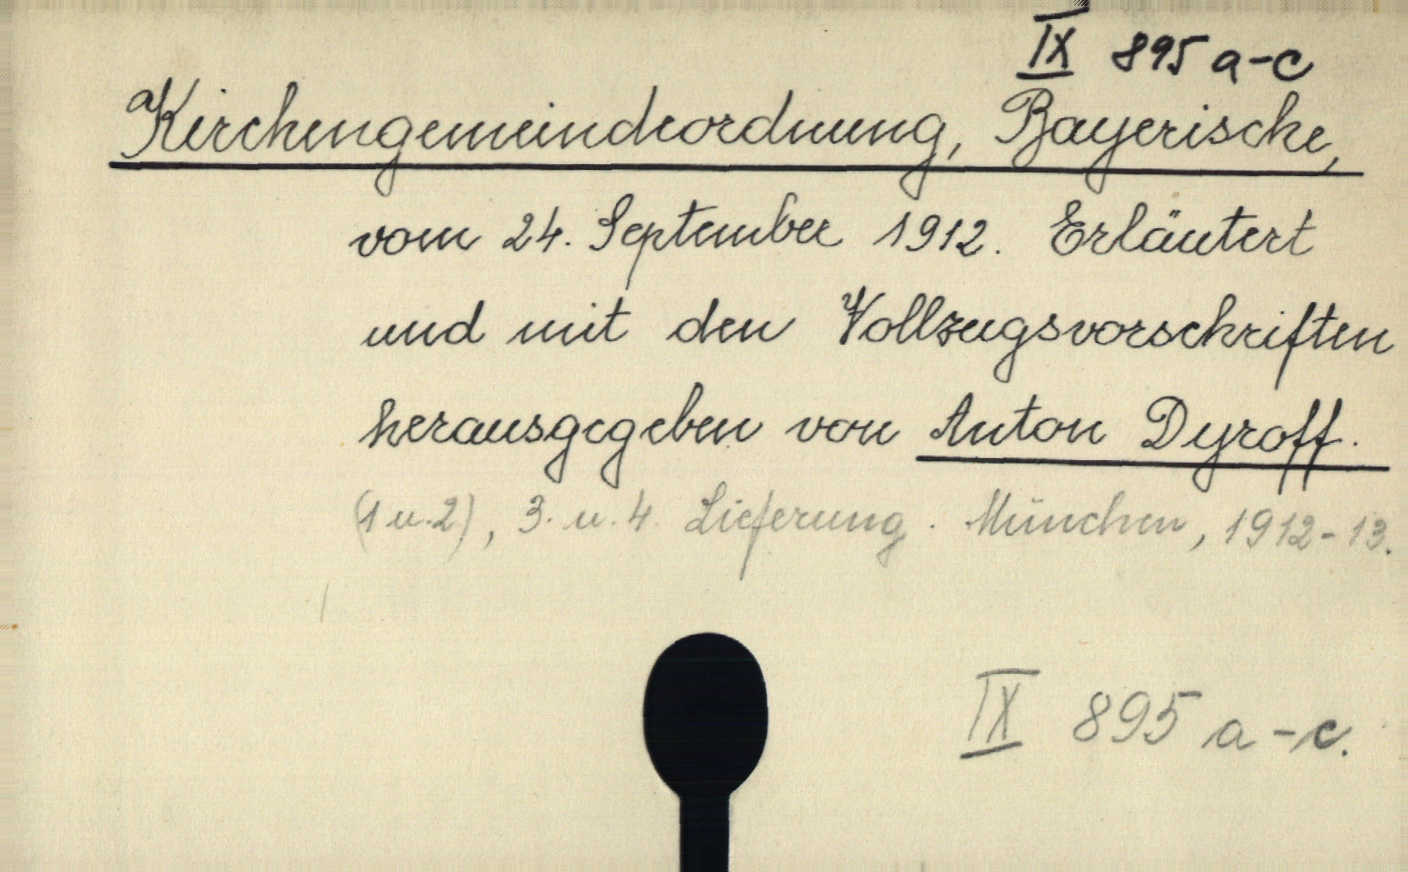 IX 895 a-c
Kirchengemeindeordnung, Bayerische,
vom 24. September 1912. Erläutert
und mit den Vollzugsvorschriften
herausgegeben von Anton Dyroff.
(1 u. 2), 3. u. 4. Lieferung. München, 1912-13.
IX 895 a-c.